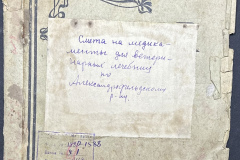 Смета на медика-
менты для ветери-
нарных лечебниц
по
Александрфельдскому
р-ну.